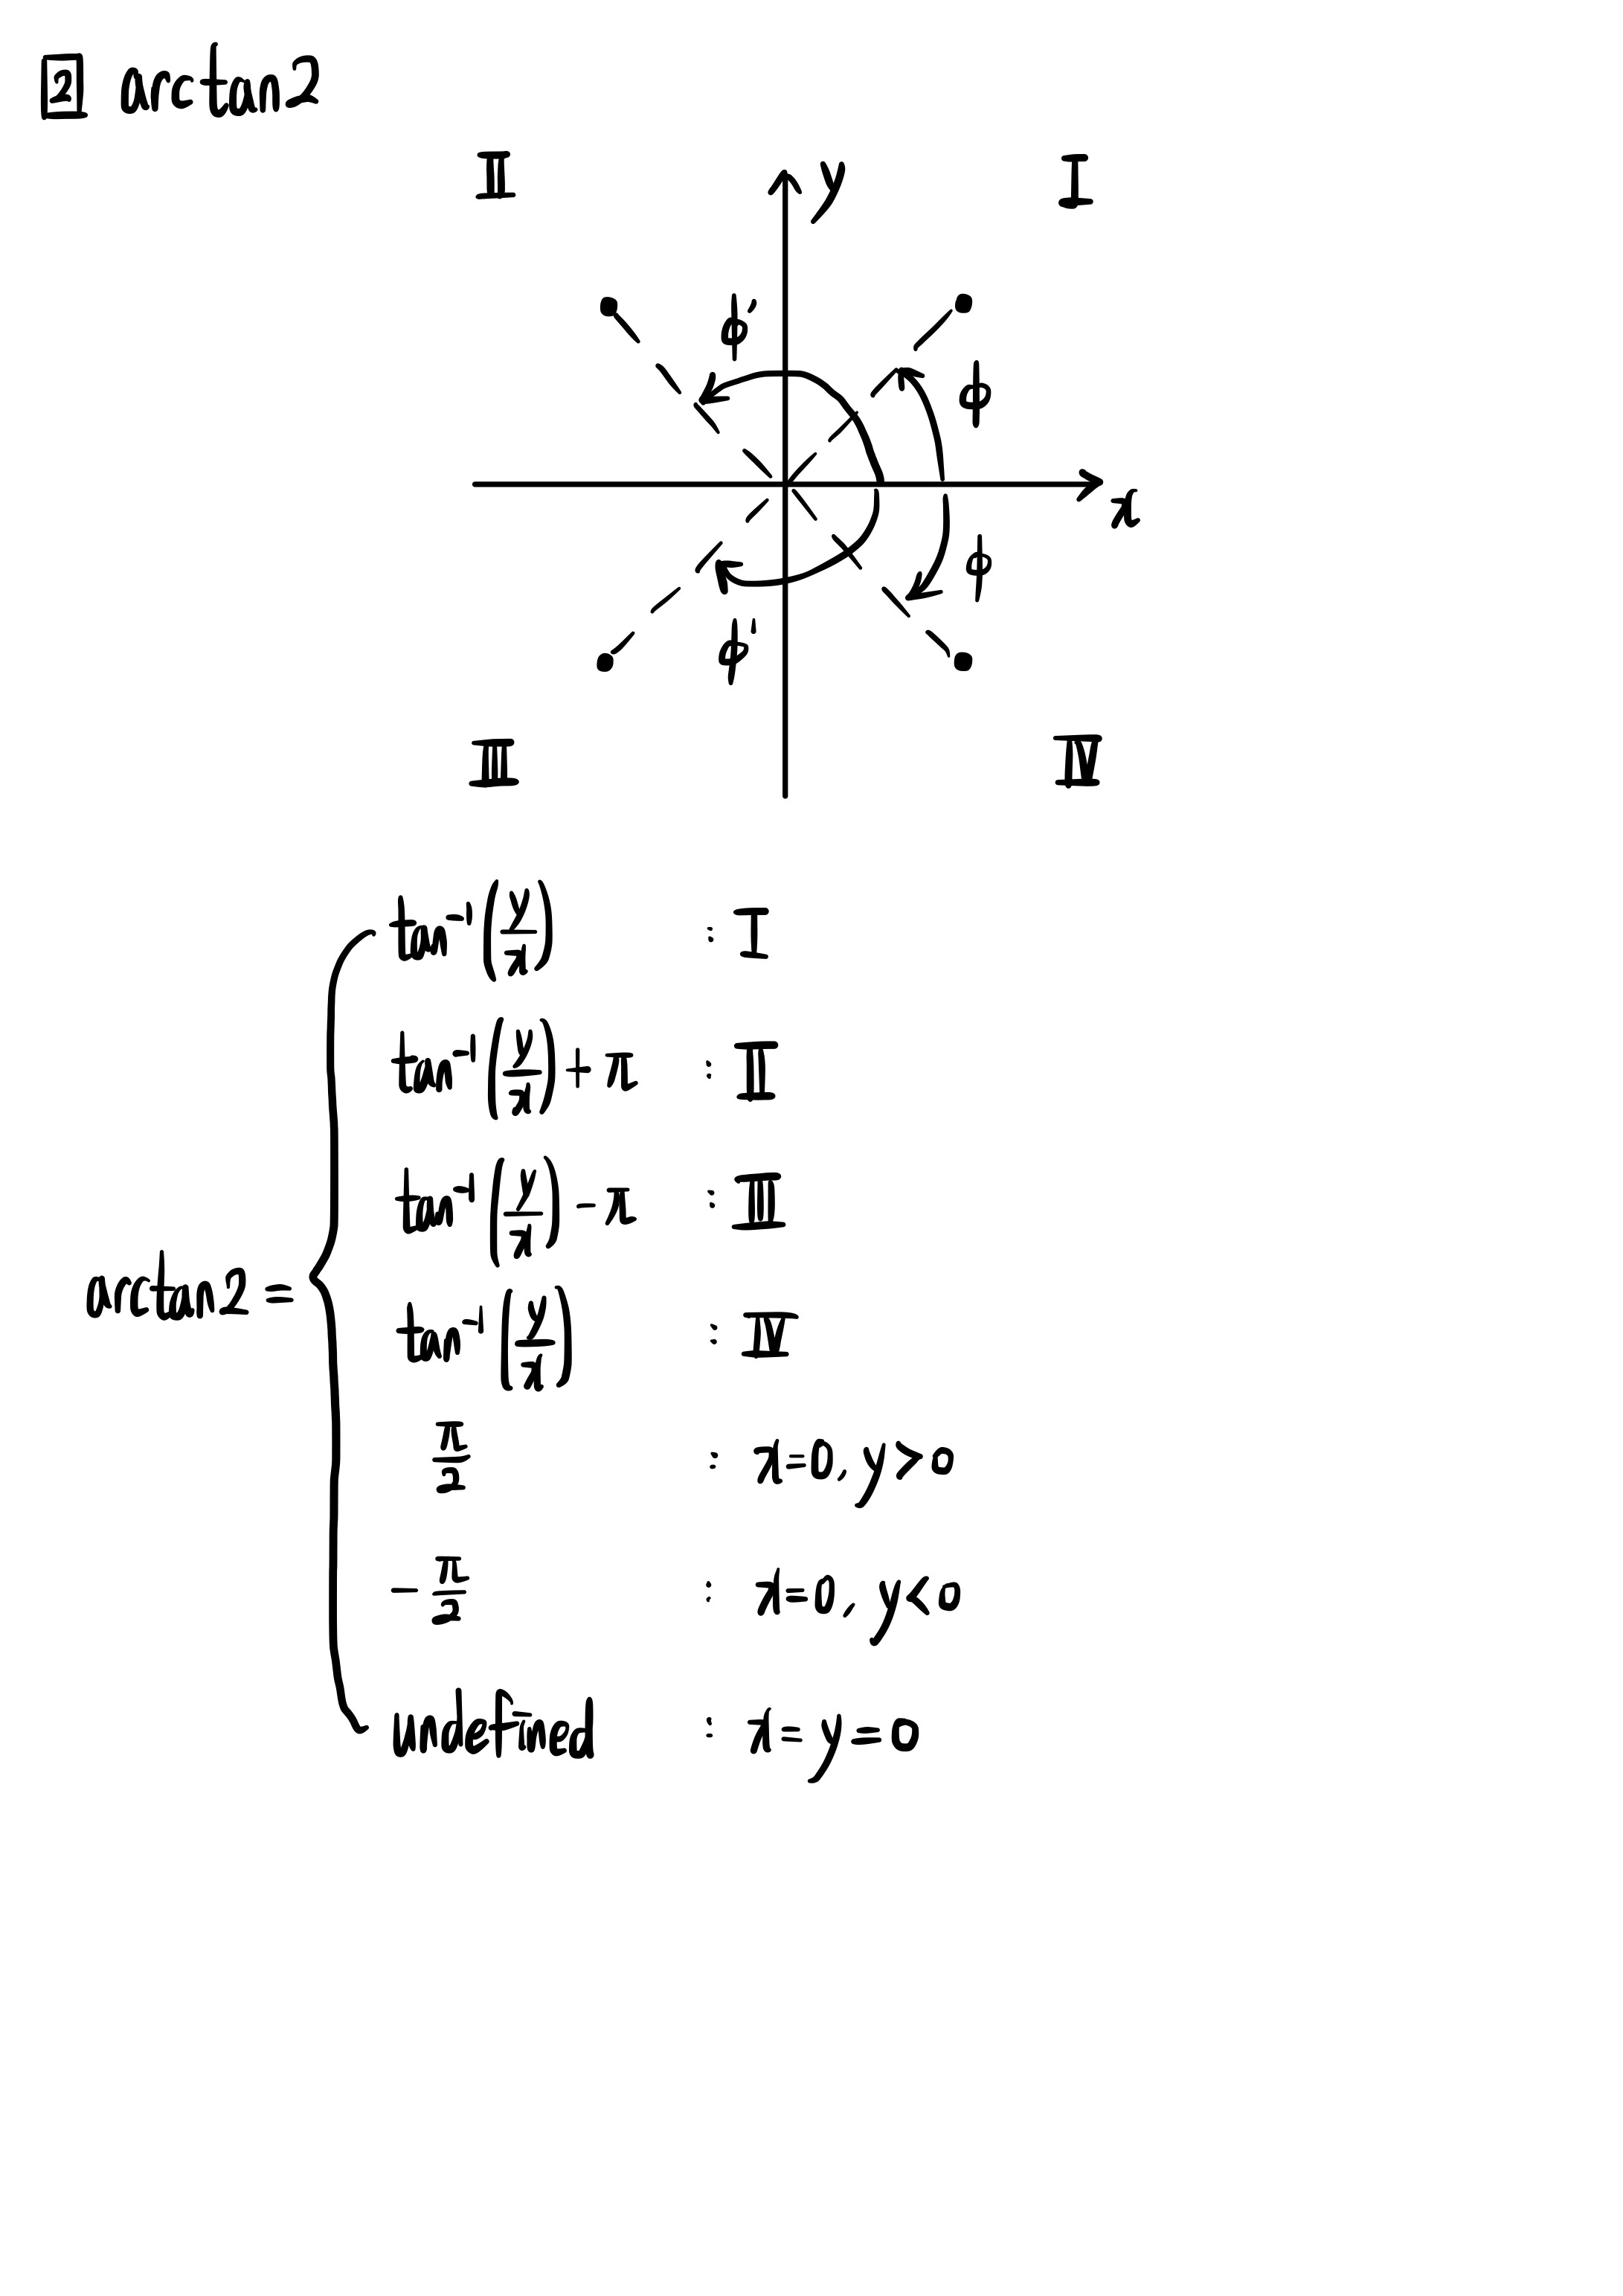 2 arctan2
II y I
ϕ' ϕ
x
ϕ
ϕ'
III IV
tan⁻¹(y/x) : I
tan⁻¹(y/x) + π : II
tan⁻¹(y/x) - π : III
arctan2 =
tan⁻¹(y/x) : IV
π/2 : x=0, y>0
-π/2 : x=0, y<0
undefined : x=y=0